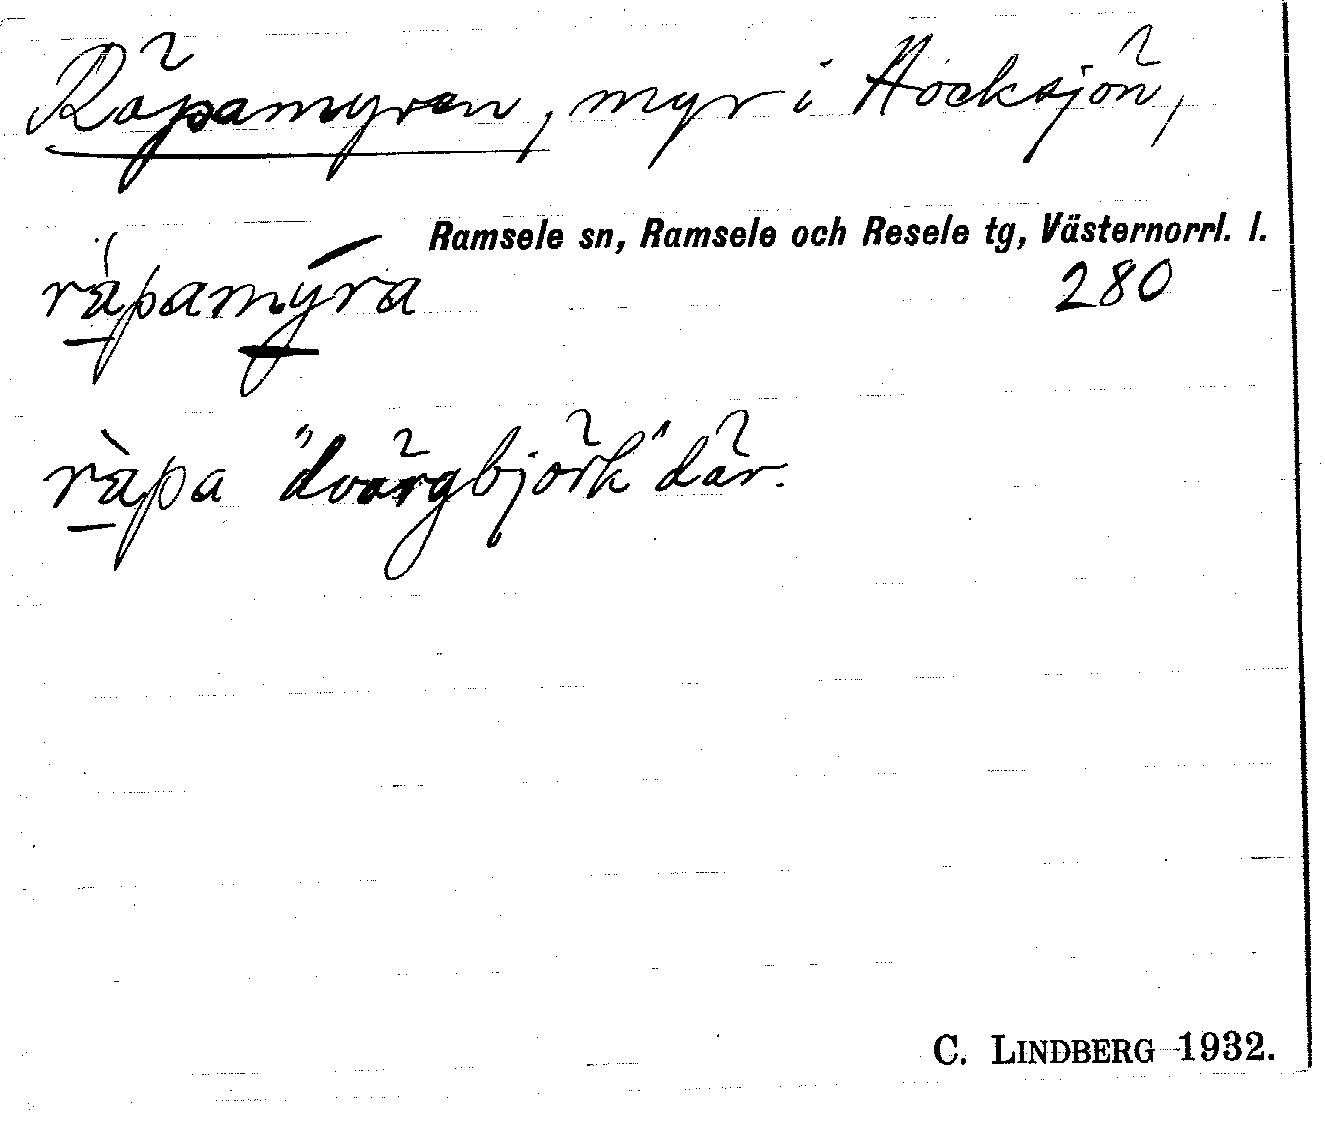 Räpamyren, myr i Hocksjön,
Ramsele sn, Ramsele och Resele tg, Västernorrl. l.
ràpamýra 280
ràpa "dvärgbjörk" där.
C. LINDBERG 1932.